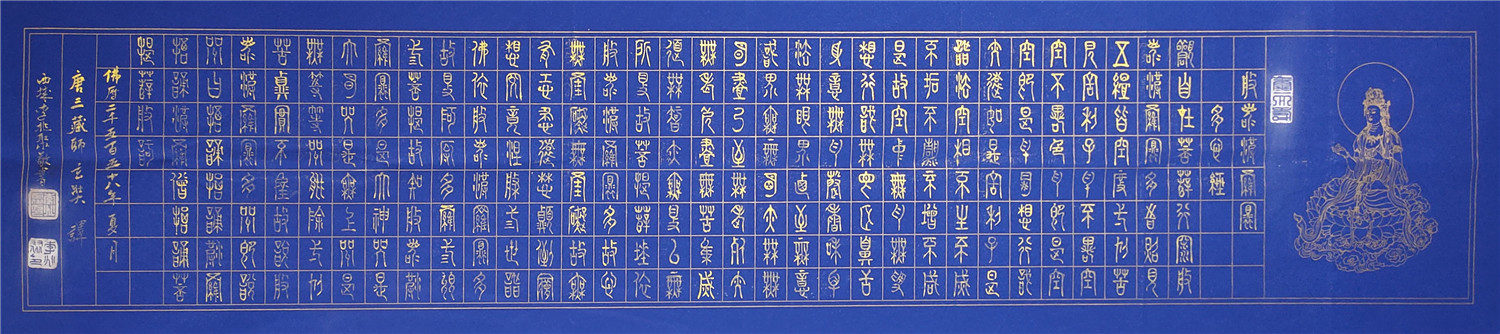 般若波羅蜜
多心經
觀自在菩薩行深般
若波羅蜜多時照見
五蘊皆空度一切苦
厄舍利子色不異空
空不異色色即是空
空即是色受想行識
亦復如是舍利子是
諸法空相不生不滅
不垢不淨不增不減
是故空中無色無受
想行識無眼耳鼻舌
身意無色聲香味觸
法無眼界乃至無意
識界無無明亦無無
明盡乃至無老死亦
無老死盡無苦集滅
道無智亦無得以無
所得故菩提薩埵依
般若波羅蜜多故心
無罣礙無罣礙故無
有恐怖遠離顛倒夢
想究竟涅槃三世諸
佛依般若波羅蜜多
故得阿耨多羅三藐
三菩提故知般若波
羅蜜多是大神咒是
大明咒是無上咒是
無等等咒能除一切
苦真實不虛故說般
若波羅蜜多咒即說
咒曰揭諦揭諦波羅
揭諦波羅僧揭諦菩
提薩婆訶
佛曆二千五百五十八年夏月
唐三藏師玄奘譯